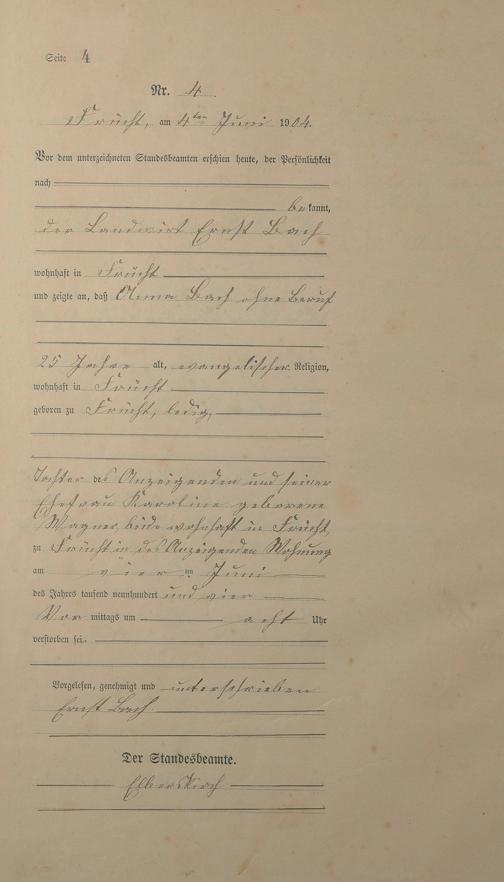 Seite 4
Nr. 4
Frücht, am 4ten Juni 1904.
Vor dem unterzeichneten Standesbeamten erschien heute, der Persönlichkeit
nach
bekannt,
der Landwirt Ernst Bach
wohnhaft in Frücht
und zeigte an, daß Anna Bach ohne Beruf
25 Jahre alt, evangelischer Religion,
wohnhaft in Frücht
geboren zu Frücht, ledig,
Tochter des Anzeigenden und seiner
Ehefrau Karoline geborene
Wagner, beide wohnhaft in Frücht
zu Frücht in des Anzeigenden Wohnung
am vier ten Juni
des Jahres tausend neunhundert und vier
Vor mittags um acht Uhr
verstorben sei.
Vorgelesen, genehmigt und unterschrieben
Ernst Bach.
Der Standesbeamte.
Elberskirch